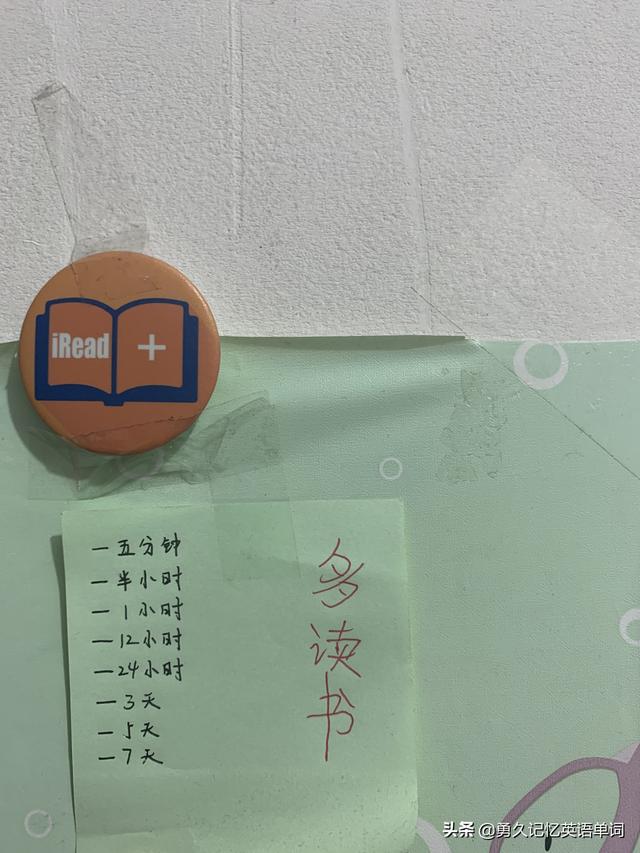 iRead +
一五分钟
一半小时
一1小时
一12小时
一24小时
一3天
一5天
一7天
多读书
头条 @勇久记忆英语单词